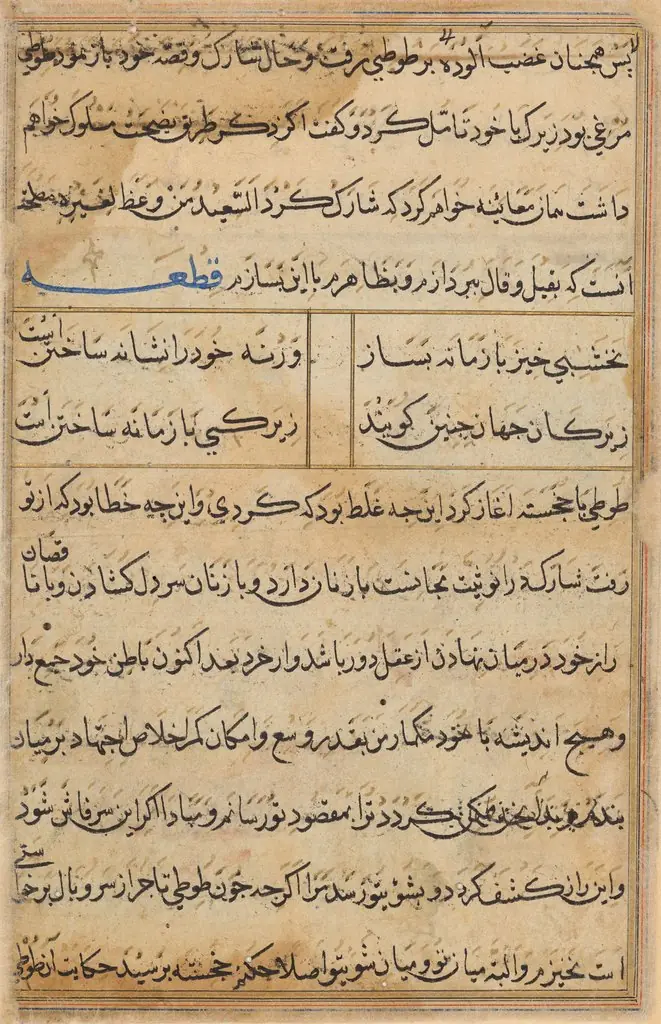 پس همچنان غضب آلوده بر طوطي رفت و حال شارک و قصه خود باز نمود طوطي
مرغي بود زیرک با خود تامل کرد و گفت اکر ذکر طریق نصیحت مسلوک خواهم
داشت همان معاینه خواهم کرد که شارک کرد السعید من وعظ لغیره مصلحة
آنست که بقیل و قال بپردازم و بظاهرم با این بسازم قطعه
نخشبي خیز با زمانه بساز ورنه خود را نشانه ساختن است
زیرکان جهان چنین کویند زیرکي با زمانه ساختن است
طوطي با خجسته اغاز کرد این چه غلط بود که کردي و این چه خطا بود که از تو
رفت شارک را نوثیت مجانست با زنان دارد و با زنان سر دل کشادن و با ناقصان
راز خود در میان نهادن از عقل دور باشد وار خرد بعد اکنون باطن خود جمع دار
و هیچ اندیشه با خود مکمار من بقدر وسع و امکان کمر اخلاص اجتهاد بر میان
بندم کردد ترا بمقصود تو رسانم و مبادا اکر این سر فاش شود
و این راز کشف کردد و بشوي تو رسد مرا اکر چه چون طوطي تاجر از سر و بال بر خاستي
است نخیزم والبته میان تو و میان شوي تو اصلاح کنم خجسته پرسید حکایت آن طوطي